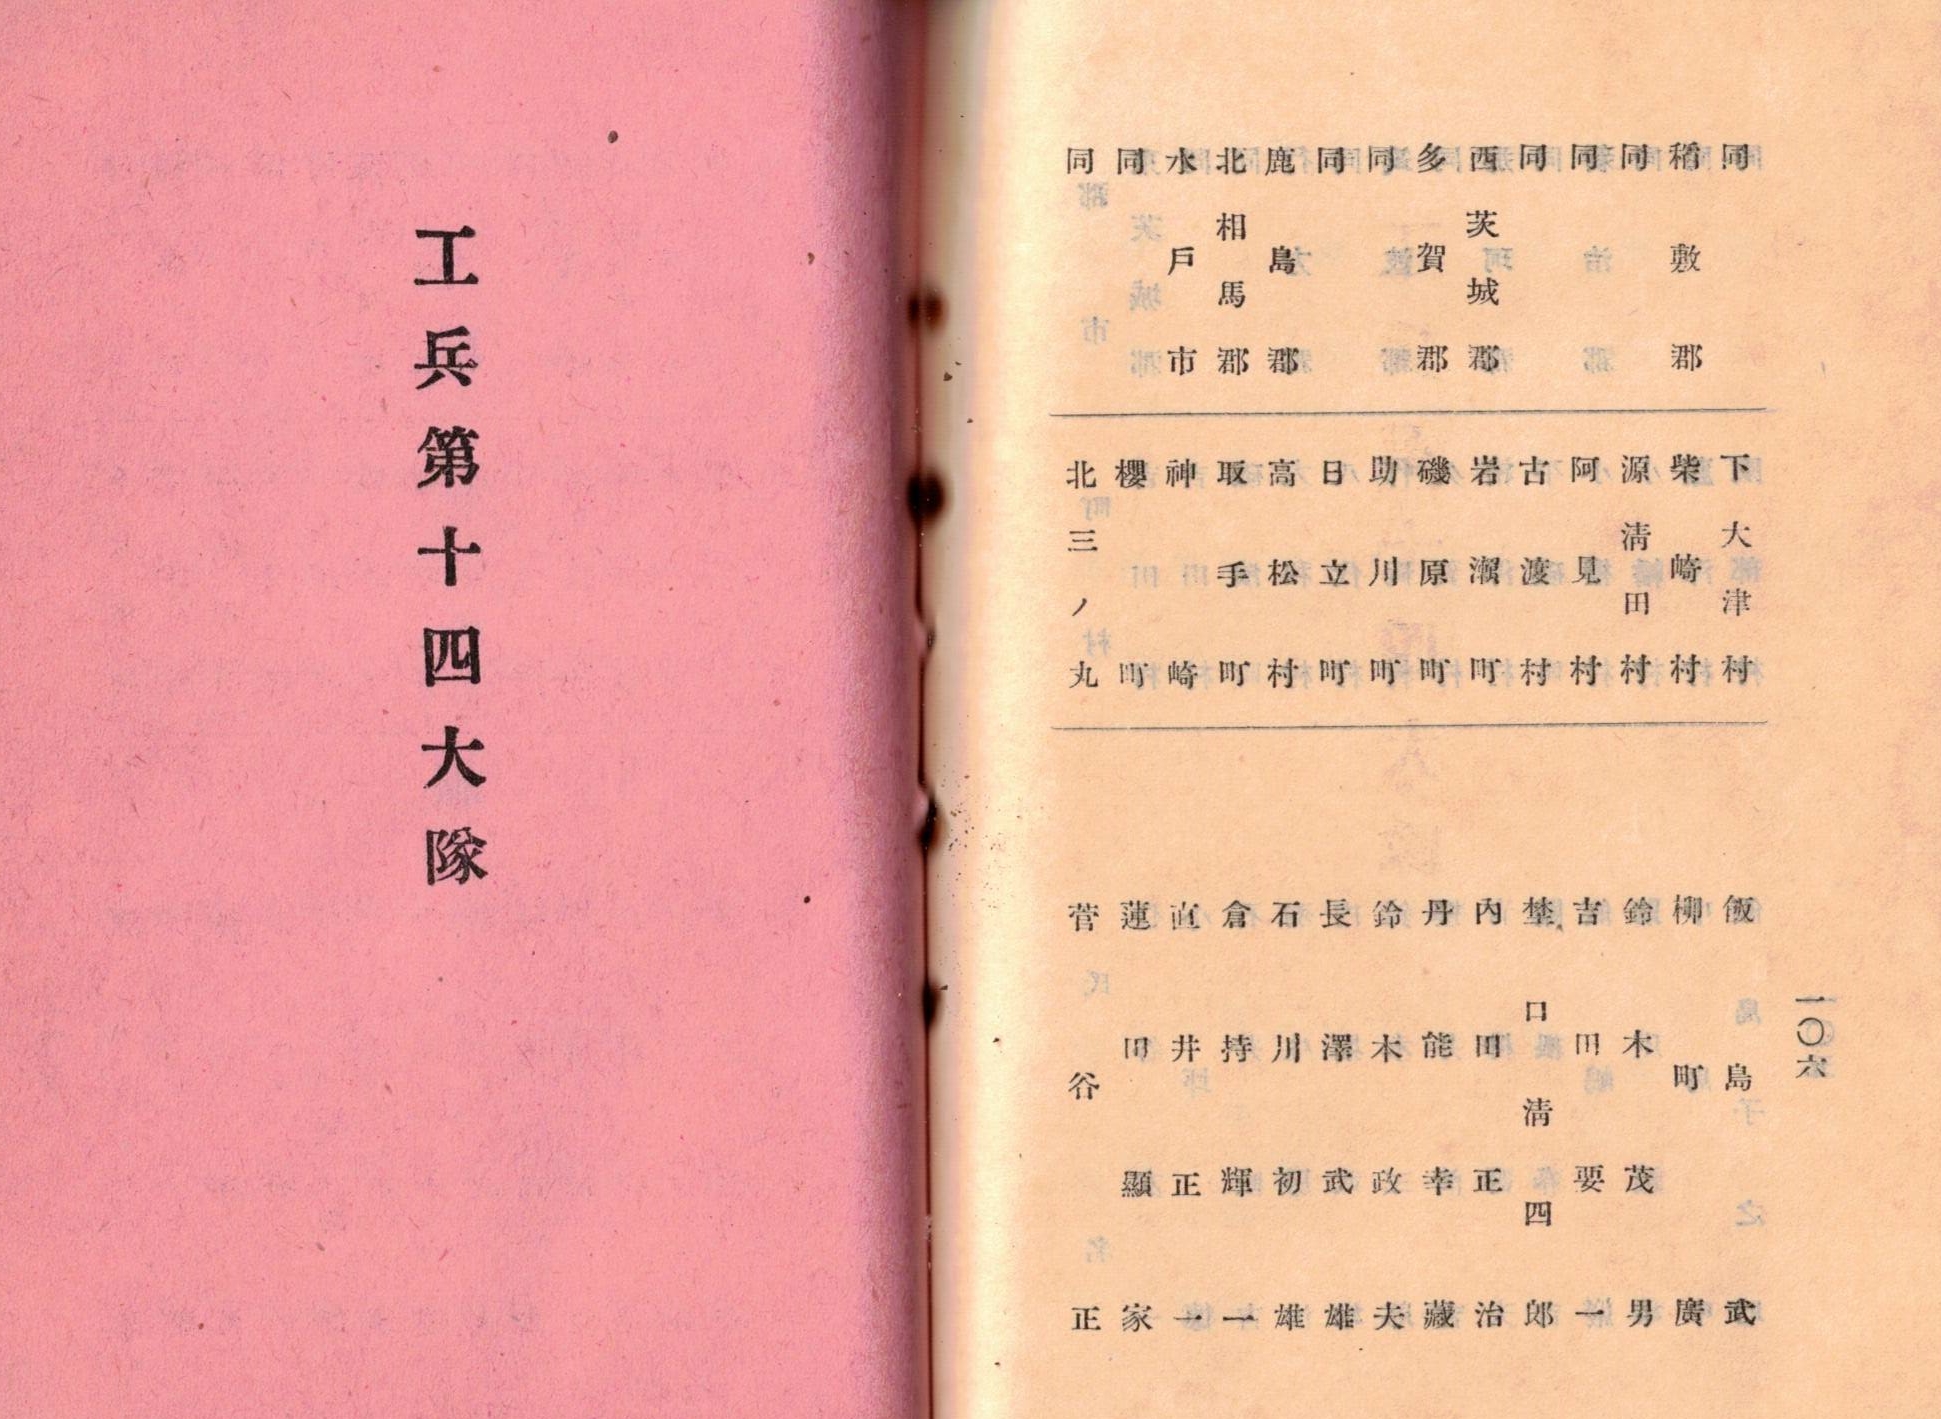 一〇六
同 下大津村 飯島武
稻敷郡 柴崎村 柳町廣
同 源淸田村 鈴木茂男
同 阿見村 吉田要一
同 古渡村 埜口淸四郎
西茨城郡 岩瀨町 內田正治
多賀郡 磯原町 丹能幸藏
同 助川町 鈴木政夫
同 日立町 長澤武雄
鹿島郡 高松村 石川初雄
北相馬郡 取手町 倉持輝一
水戶市 神崎 直井正一
同 櫻町 蓮田顯家
同 北三ノ丸 菅谷正
工兵第十四大隊